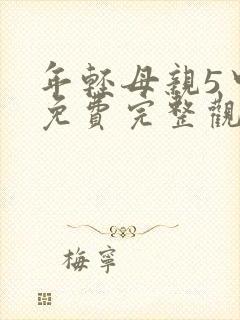 年輕母親5中
免費完整觀
梅寧